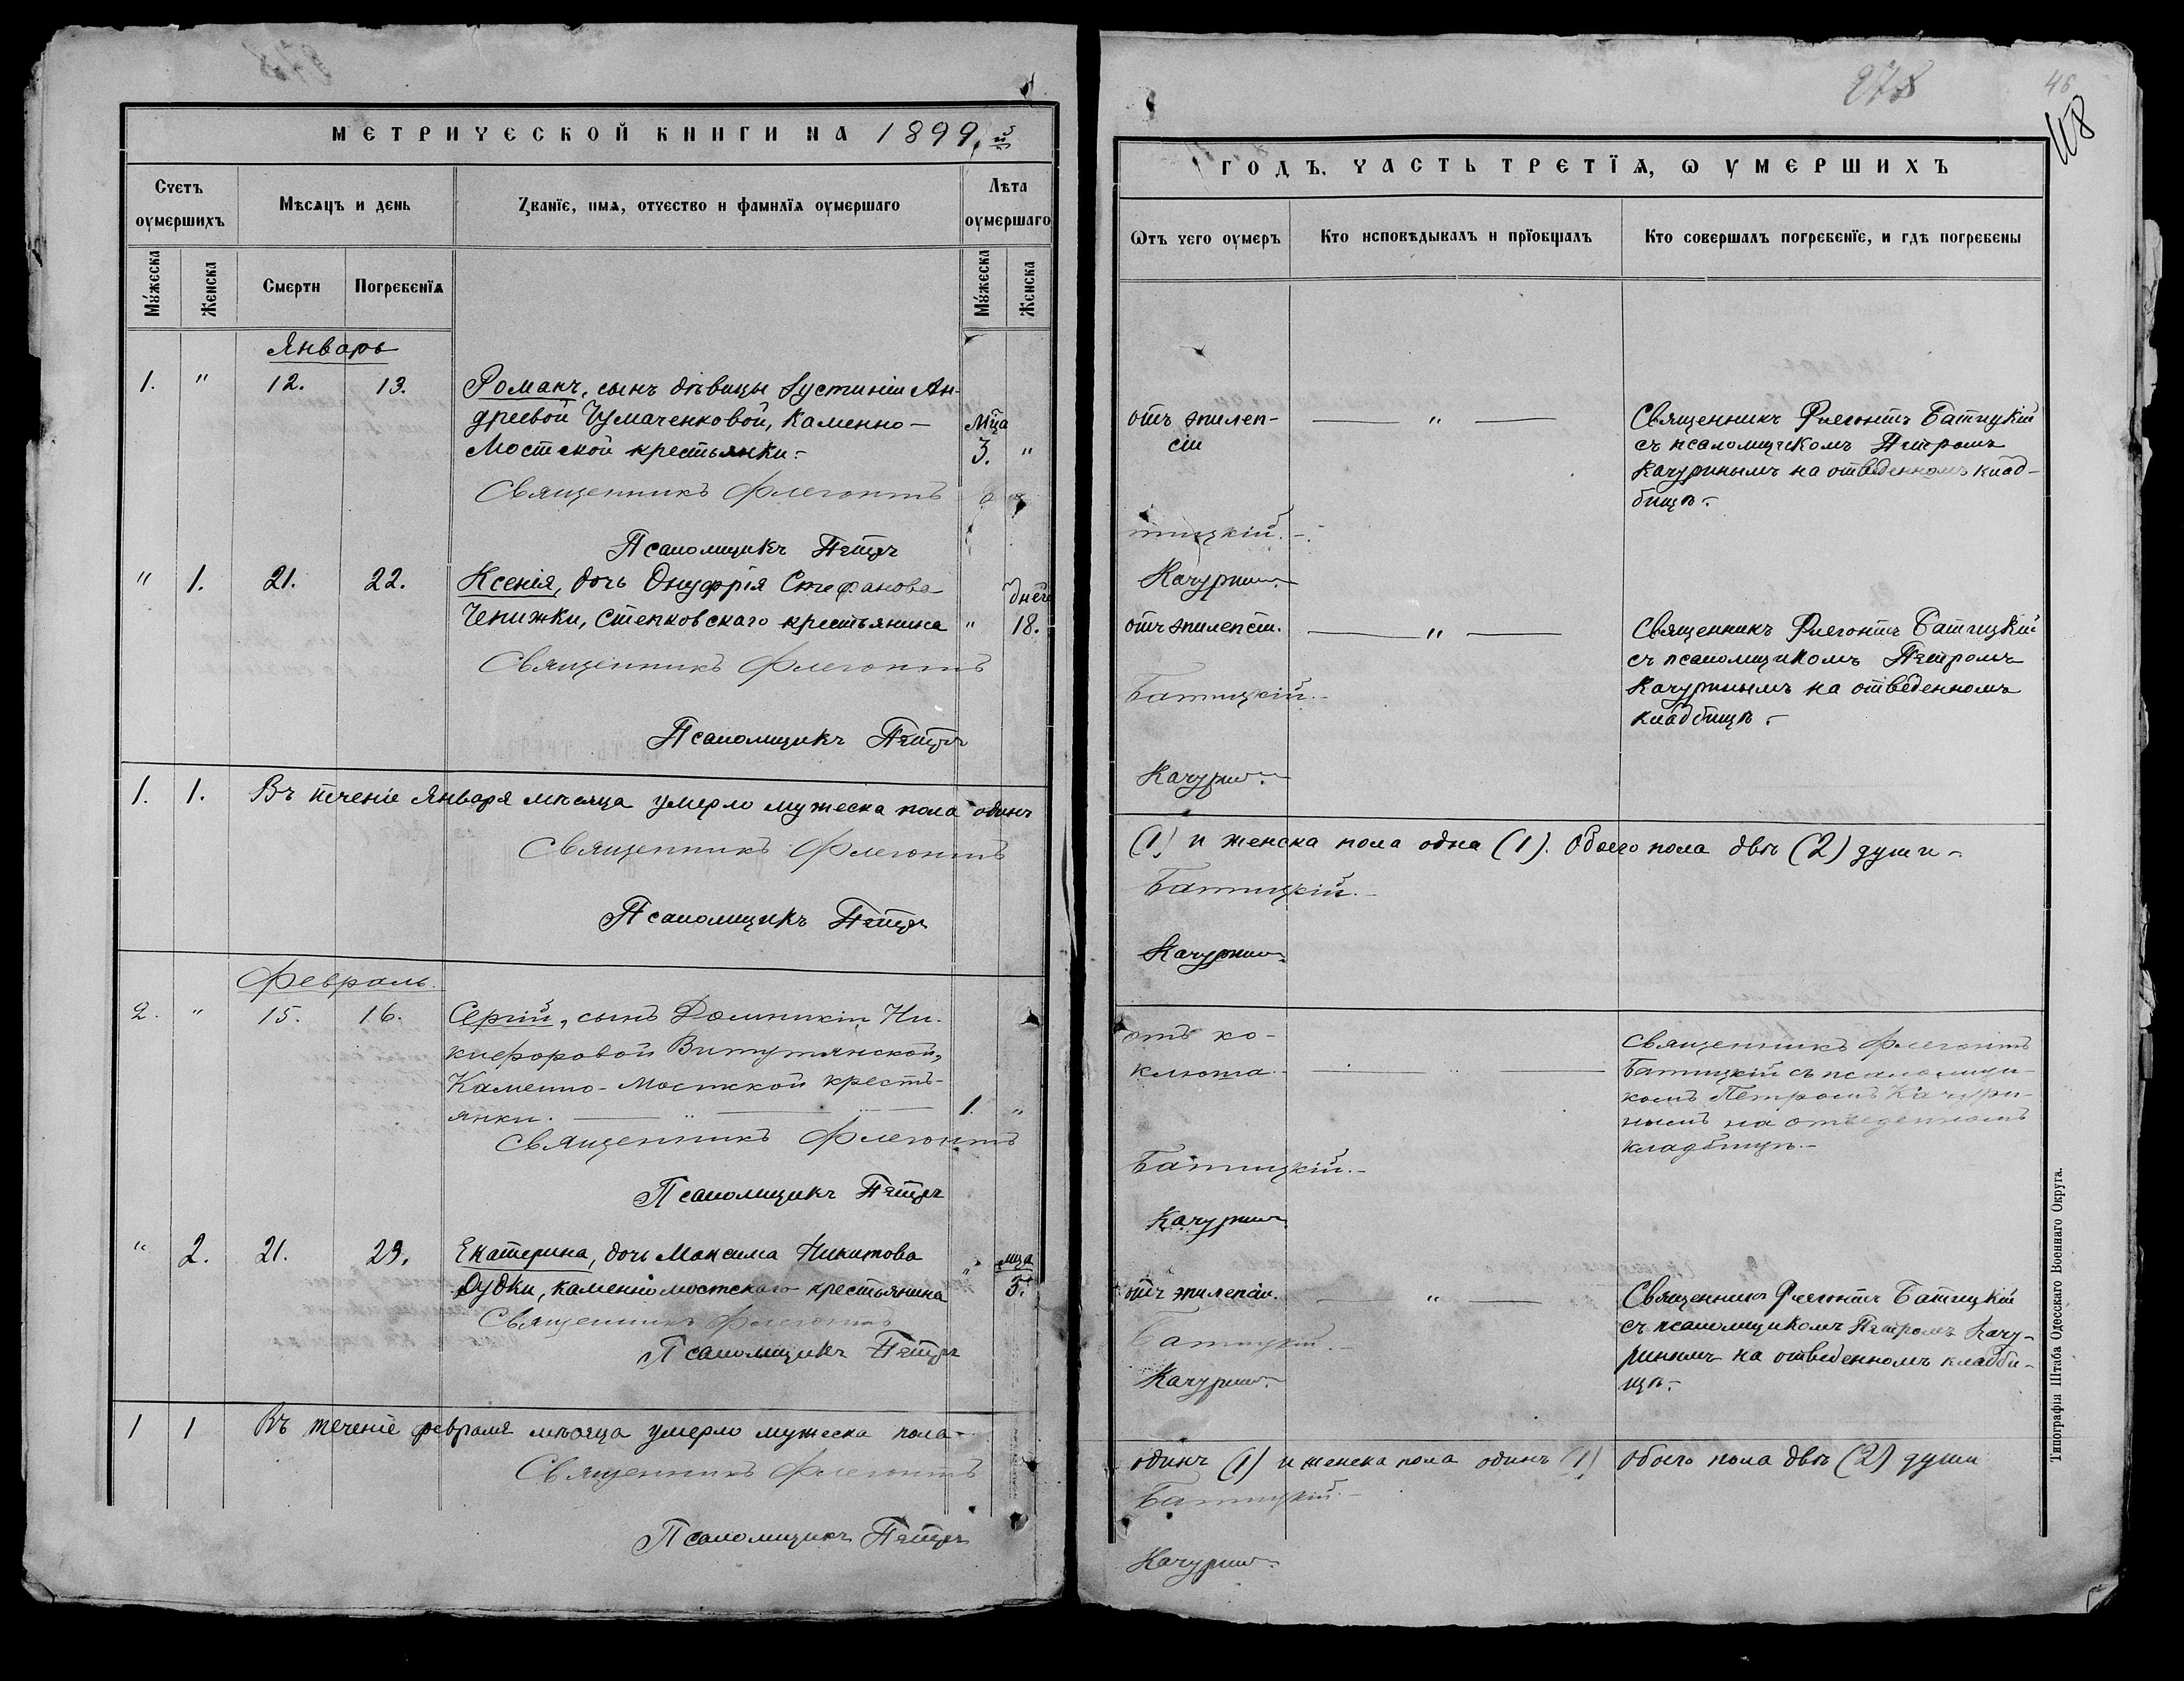 МЕТРИЧЕСКОЙ КНИГИ НА 1899й
Счетъ оумершихъ
Мѣсяцъ и день
Званїе, имя, отчество и фамилїя оумершаго
Лѣта оумершаго
Мужеска
Женска
Смерти
Погребенїя
Мужеска
Женска
Январь
1. " 12. 13. Романъ, сынъ дѣвицы Іустиніи Ан-
дреевой Чумаченковой, Каменно-
Мостской крестьянки.-
мца
3. "
Священникъ Флегонтъ
Псаломщикъ Петръ
" 1. 21. 22. Ксенія, дочь Онуфрія Стефанова
Чепижки, Степковскаго крестьянина "
дней
18.
Священникъ Флегонтъ
Псаломщикъ Петръ
1. 1. Въ теченіе Января мѣсяца умерло мужеска пола одинъ
Священникъ Флегонтъ
Псаломщикъ Петръ
Февраль.
2. " 15. 16. Сергій, сынъ Домникіи Ни-
кифоровой Витутянской,
Каменно-Мостской кресть-
янки. 1. "
Священникъ Флегонтъ
Псаломщикъ Петръ
" 2. 21. 23. Екатерина, дочь Максима Никитова
Дудки, каменномостскаго крестьянина "
мца
5.
Священникъ Флегонтъ
Псаломщикъ Петръ
1 1 Въ теченіе февраля мѣсяца умерло мужеска пола
Священникъ Флегонтъ
Псаломщикъ Петръ
278
46
108
ГОДЪ, ЧАСТЬ ТРЕТЇЯ, Ѡ УМЕРШИХЪ
Ѿтъ чего оумеръ
Кто исповѣдывалъ и прїобщалъ
Кто совершалъ погребенїе, и гдѣ погребены
отъ эпилеп-
сіи
"
Священникъ Флегонтъ Батицкій
съ псаломщикомъ Петромъ
Качуринымъ на отведенномъ клад-
бищѣ.-
тицкій.-
Качуринъ.
отъ эпилепсіи.
"
Священникъ Флегонтъ Батицкій
съ псаломщикомъ Петромъ
Качуринымъ на отведенномъ
кладбищѣ.-
Батицкій.-
Качуринъ.
(1) и женска пола одна (1). Обоего пола двѣ (2) души-
Батицкій.-
Качуринъ.
отъ ко-
клюша.
Священникъ Флегонтъ
Батицкій съ псаломщи-
комъ Петромъ Качури-
нымъ на отведенномъ
кладбищѣ.-
Батицкій.-
Качуринъ.
отъ эпилепсіи.
"
Священникъ Флегонтъ Батицкій
съ псаломщикомъ Петромъ Качу-
ринымъ на отведенномъ кладби-
щѣ.-
Батицкій.-
Качуринъ.
одинъ (1) и женска пола одинъ (1) обоего пола двѣ (2) души
Батицкій.-
Качуринъ.
Типографія Штаба Одесскаго Военнаго Округа.